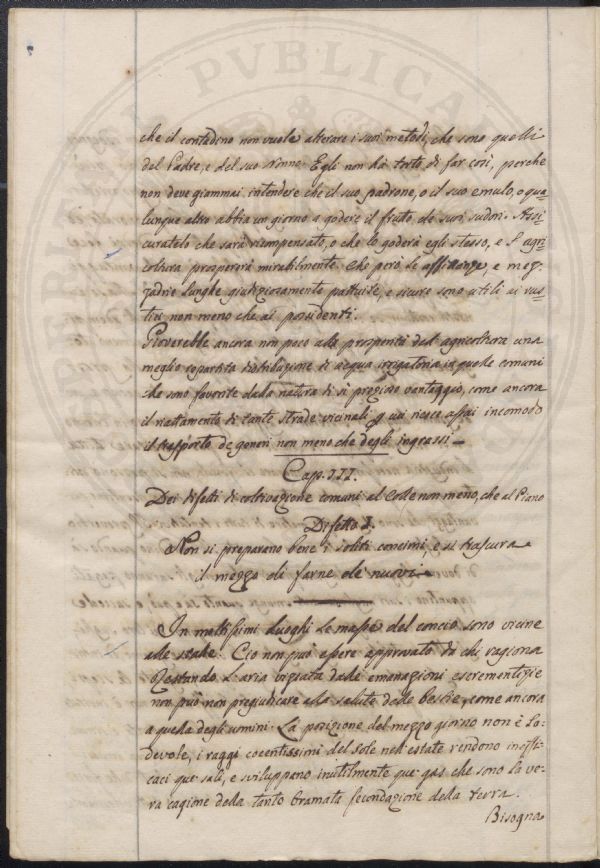 che il contadino non vuole alterare i suoi metodi, che sono quelli
del Padre, e del suo Nonno. Egli non hà torto di far così, perche
non deve giammai intendere che il suo padrone, o il suo emulo, o qua=
lunque altro abbia un giorno a godere il frutto de suoi sudori. Assi=
curatelo che sarà ricompensato, o che lo goderà egli stesso, e l'agri=
coltura prospererà mirabilmente. Che però le affittanze, e mez=
zadrie lunghe giudiziosamente pattuite, e sicure sono utili ai rus=
tici non meno che ai possidenti.
Gioverebbe ancora non poco alla prosperità dell'agricoltura una
meglio ripartita distribuzione di acqua irrigatoria in quelle comuni
che sono favorite dalla natura di sì prezioso vantaggio, come ancora
il riattamento di tante strade vicinali p cui riesce assai incomodo
il trasporto de generi non meno che degli ingrassi.
Cap. III.
Dei difetti di coltivazione comuni al Colle non meno, che al Piano
Difetto I.
Non si preparano bene i soliti concimi, e si trascura
il mezzo di farne de nuovi
In moltissimi luoghi le masse del concio sono vicine
alle stalle. Ciò non può essere approvato da chi ragiona
Restando l'aria viziata dalle emanazioni escrementizie
non può non pregiudicare alla salute delle bestie, come ancora
a quella degli uomini. La posizione del mezzo giorno non è lo=
devole, i raggi cocentissimi del sole nell'estate rendono ineffi=
caci que sali, e sviluppano inutilmente que gas che sono la ve=
ra cagione della tanto bramata fecondazione della terra.
Bisogna
PVBLICAE